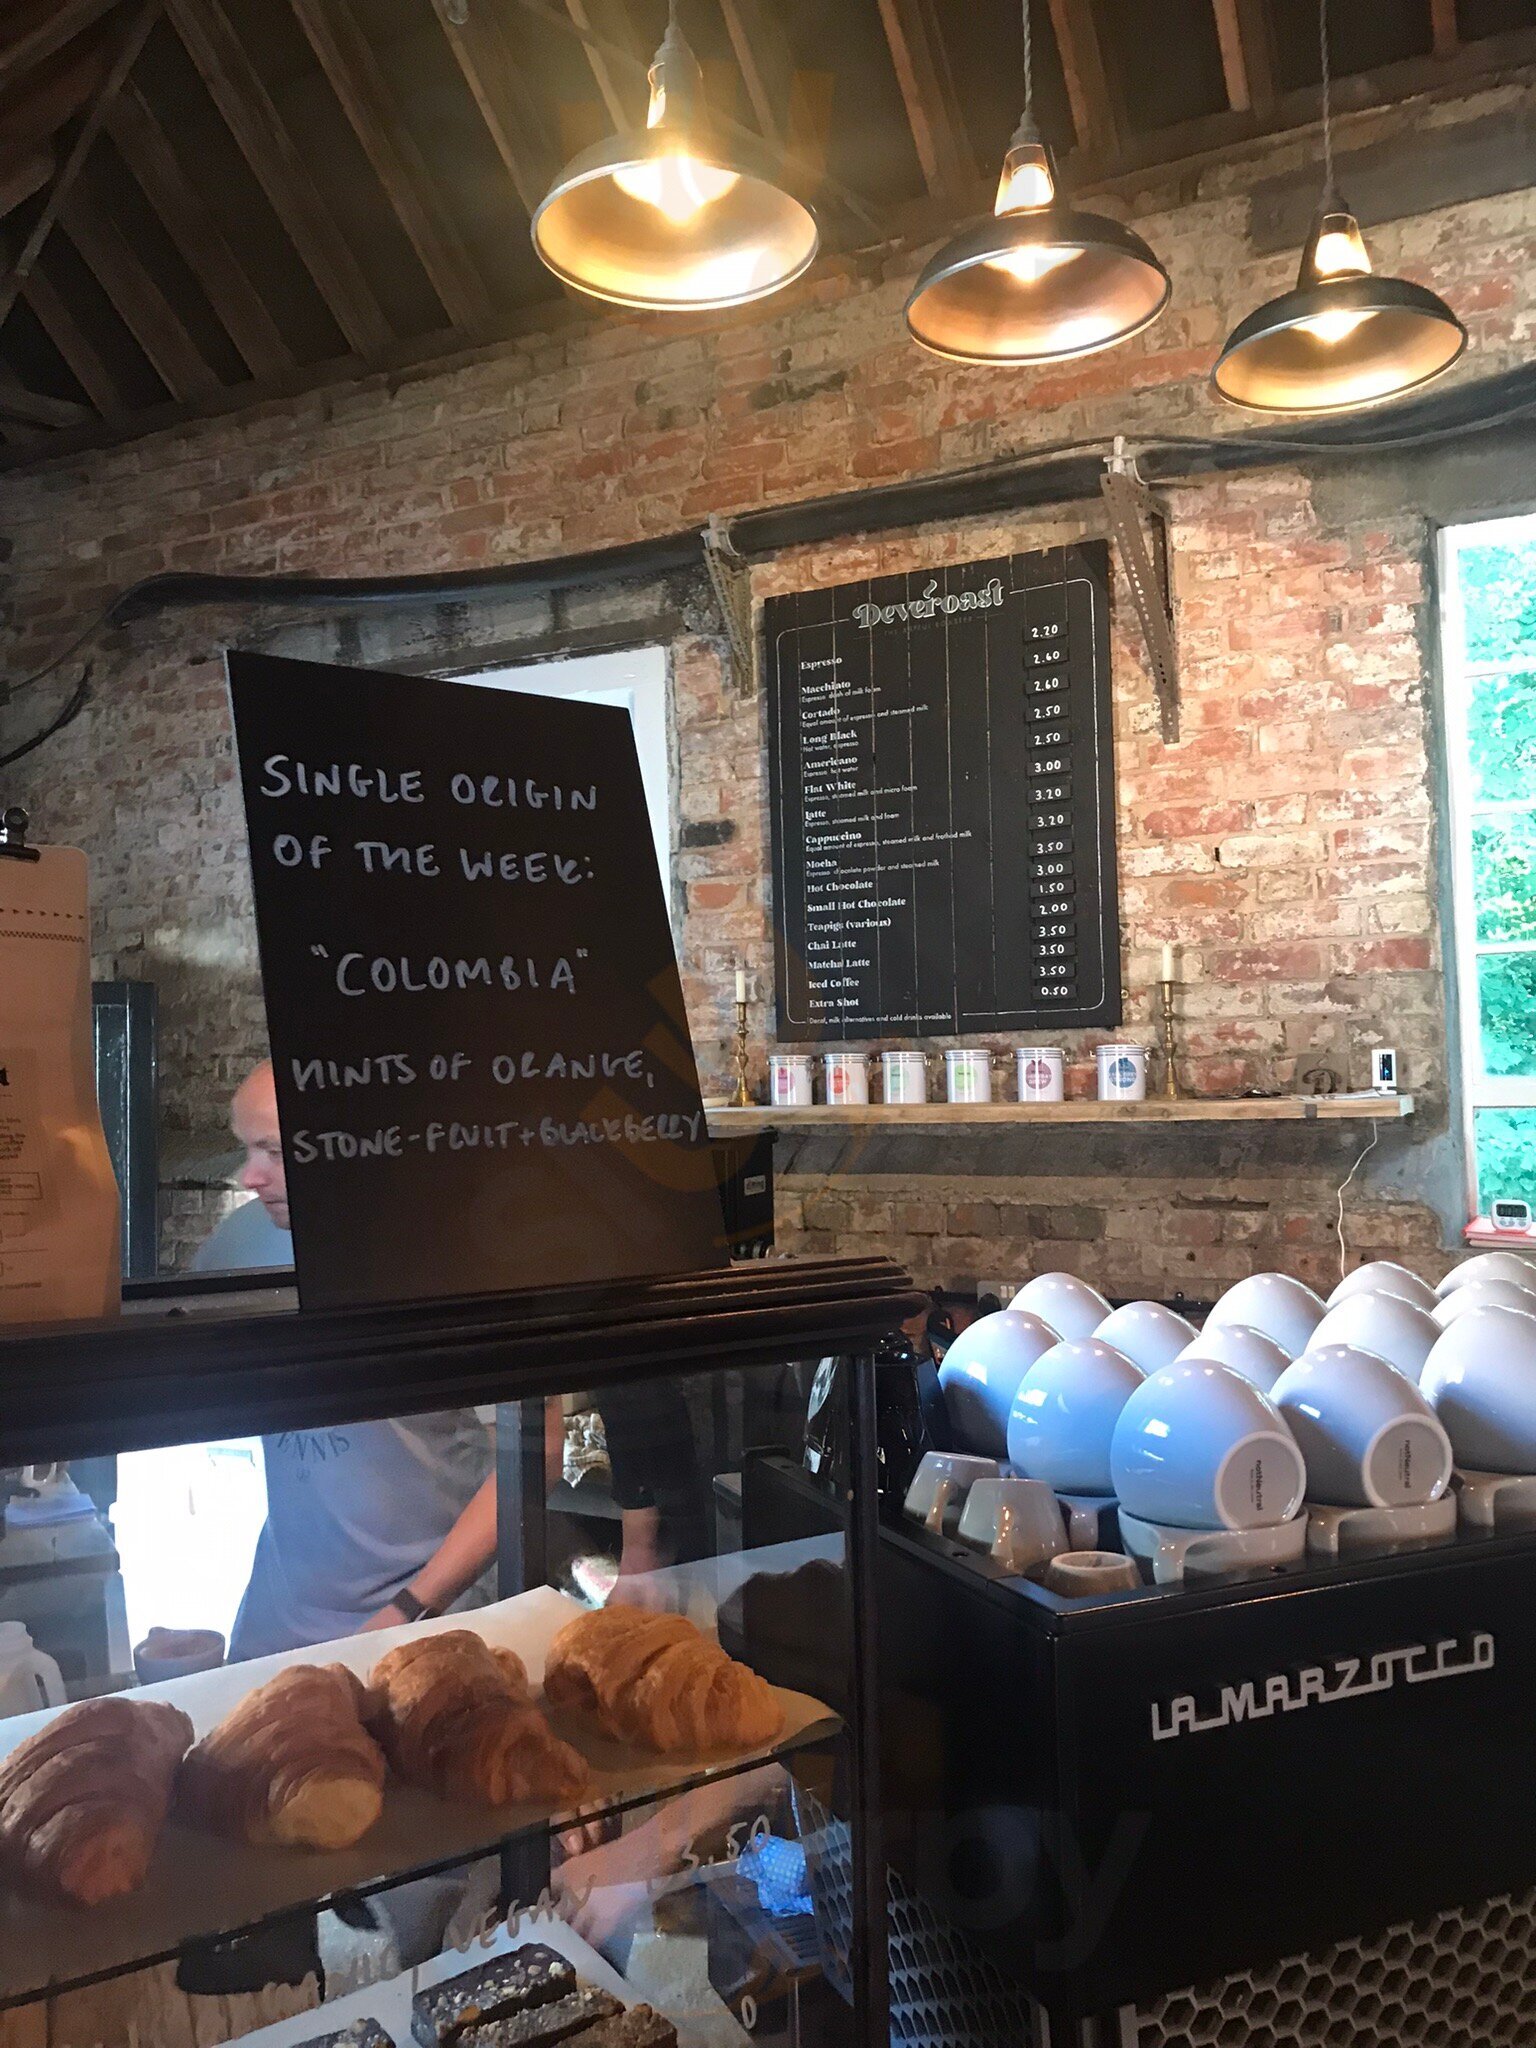 SINGLE ORIGIN
OF THE WEEK:
"COLOMBIA"
HINTS OF ORANGE,
STONE-FRUIT + BLACKBERRY
Deveroast
Espresso 2.20
Macchiato 2.60
Espresso dash of milk foam
Cortado 2.60
Equal amount of espresso and steamed milk
Long Black 2.50
Hot water, espresso
Americano 2.50
Espresso hot water
Flat White 3.00
Espresso, steamed milk and micro foam
Latte 3.20
Espresso, steamed milk and foam
Cappuccino 3.20
Equal amount of espresso, steamed milk and frothed milk
Mocha 3.50
Espresso chocolate powder and steamed milk
Hot Chocolate 3.00
Small Hot Chocolate 1.50
Teapigs (various) 2.00
Chai Latte 3.50
Matcha Latte 3.50
Iced Coffee 3.50
Extra Shot 0.50
Decaf, milk alternatives and cold drinks available
notNeutral
notNeutral
LA MARZOCCO
3.50
VEGAN